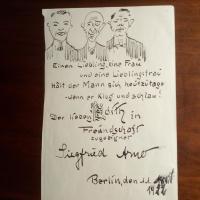 Einen Liebling, eine Frau
und eine Lieblingsfrau
Hält der Mann sich heutzutage
wenn er klug und schlau!
Der lieben Edith in
Freundschaft
zugeeignet
Siegfried Arno
Berlin, den 11. April
1922